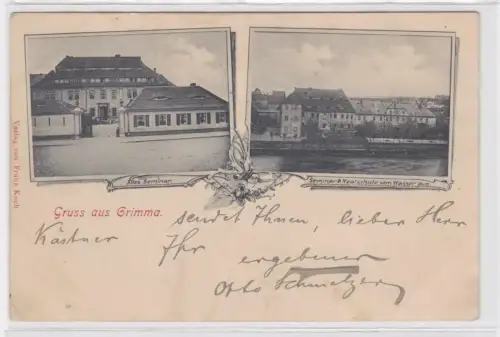 Altes Seminar.
Seminar & Realschule vom Wasser aus.
Verlag von Franz Koch
Gruss aus Grimma.
sendet Ihnen, lieber Herr
Kästner
Ihr ergebener
Otto Schmelzer